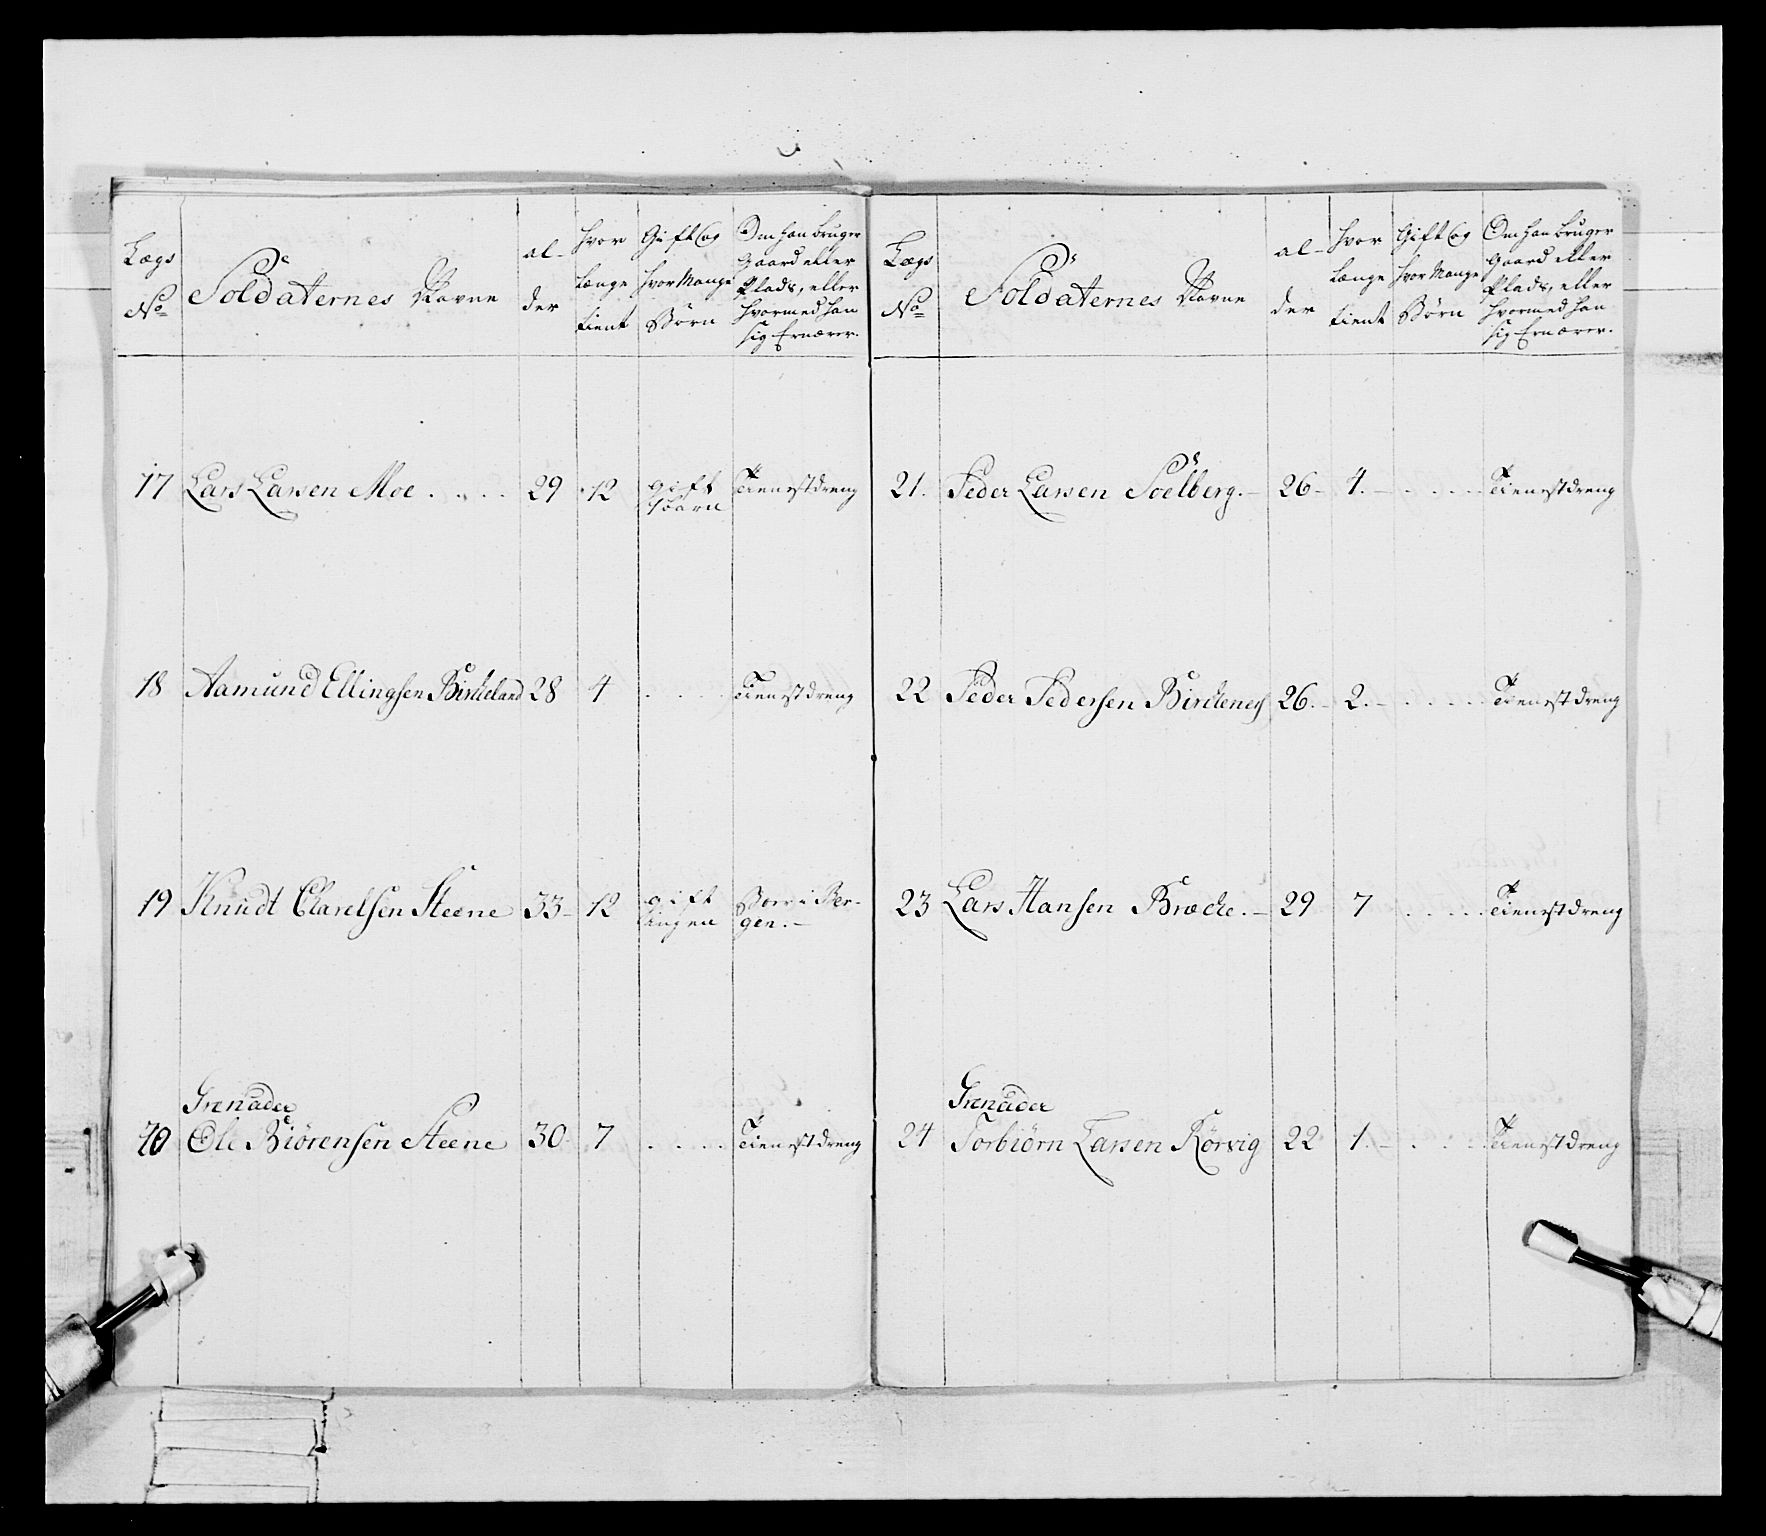 Lægs No
Soldaternes Navne
al-der
hvor længe tient
Gift og hvor Mange Børn
Om han bruger Gaard eller Plads, eller hvormed han sig Ernærer.
17 Lars Larsen Moe . . . . 29 12 gift 1 barn Tienestdreng
18 Aamund Ellingsen Birckeland 28 4 . . . . Tienestdreng
19 Knudt Claretsen Steene 33 - 12 gift ingen Boer i Bergen. -
Grenader
20 Ole Biørensen Steene 30 7 . . . . Tienestdreng
Lægs No
Soldaternes Navne
al-der
hvor længe tient
Gift og hvor Mange Børn
Om han bruger Gaard eller Plads, eller hvormed han sig Ernærer.
21. Peder Larsen Soelberg. - 26 - 4. - . . . . Tienestdreng
22 Peder Pedersen Birckenes 26. - 2. - . . . . Tienestdreng
23 Lars Hansen Bræcke. - 29 7 . . . . Tienestdreng
Grenader
24 Torbiørn Larsen Rørvig 22 1. - . . . . Tienestdreng